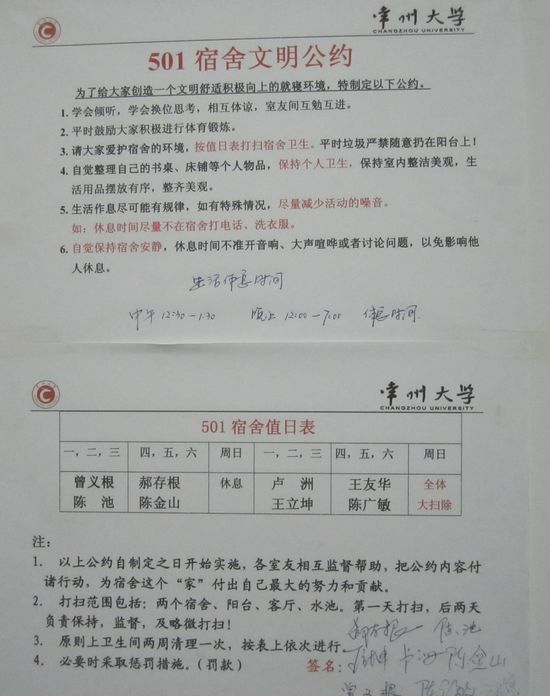 常州大学
CHANGZHOU UNIVERSITY
501 宿舍文明公约
为了给大家创造一个文明舒适积极向上的就寝环境，特制定以下公约。
1. 学会倾听，学会换位思考，相互体谅，室友间互勉互进。
2. 平时鼓励大家积极进行体育锻炼。
3. 请大家爱护宿舍的环境，按值日表打扫宿舍卫生。平时垃圾严禁随意扔在阳台上！
4. 自觉整理自己的书桌、床铺等个人物品，保持个人卫生，保持室内整洁美观，生
活用品摆放有序，整齐美观。
5. 生活作息尽可能有规律，如有特殊情况，尽量减少活动的噪音。
如：休息时间尽量不在宿舍打电话、洗衣服。
6. 自觉保持宿舍安静，休息时间不准开音响、大声喧哗或者讨论问题，以免影响他
人休息。
生活休息时间
中午 12:30—1:30 晚上 12:00—7:00 休息时间.
常州大学
CHANGZHOU UNIVERSITY
501 宿舍值日表
一，二，三 四，五，六 周日 一，二，三 四，五，六 周日
曾义根 郝存根 休息 卢 洲 王友华 全体
陈 池 陈金山 王立坤 陈广敏 大扫除
注：
1. 以上公约自制定之日开始实施，各室友相互监督帮助，把公约内容付
诸行动，为宿舍这个“家”付出自己最大的努力和贡献。
2. 打扫范围包括：两个宿舍、阳台、客厅、水池。第一天打扫，后两天
负责保持，监督，及略微打扫！
3. 原则上卫生间两周清理一次，按表上依次进行
郝存根 陈池
4. 必要时采取惩罚措施。（罚款） 签名： 卢洲 陈金山